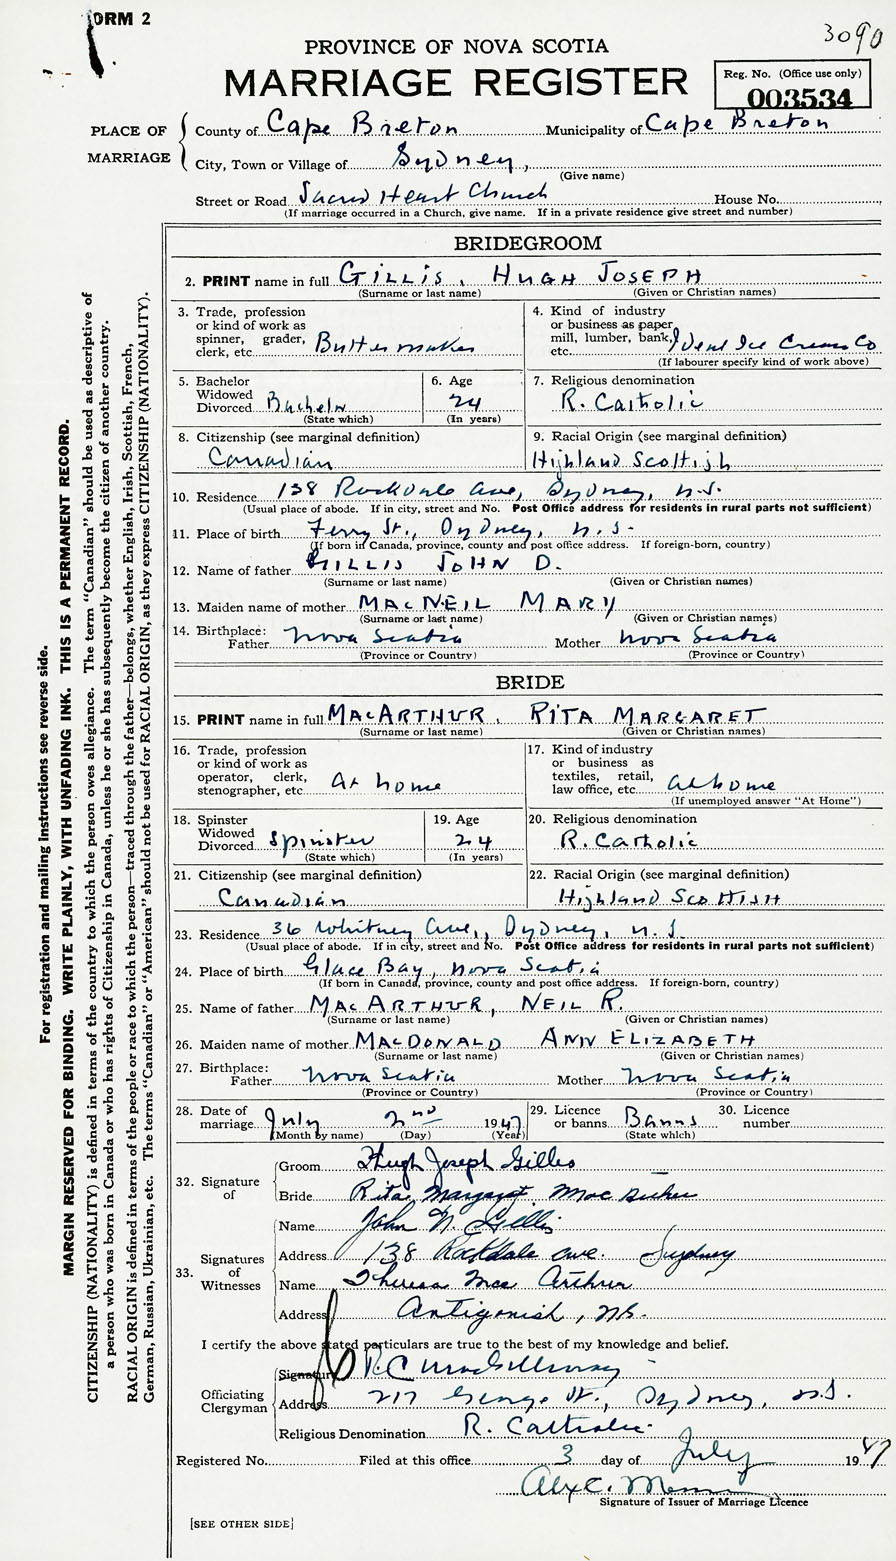 FORM 2
3090
PROVINCE OF NOVA SCOTIA
MARRIAGE REGISTER
Reg. No. (Office use only)
003534
PLACE OF MARRIAGE
County of Cape Breton Municipality of Cape Breton
City, Town or Village of Sydney,
(Give name)
Street or Road Sacred Heart Church House No.
(If marriage occurred in a Church, give name. If in a private residence give street and number)
BRIDEGROOM
2. PRINT name in full GILLIS, HUGH JOSEPH
(Surname or last name) (Given or Christian names)
3. Trade, profession or kind of work as spinner, grader, clerk, etc. Butter maker
4. Kind of industry or business as paper mill, lumber, bank, etc. Ideal Ice Cream Co
(If labourer specify kind of work above)
5. Bachelor Widowed Divorced Bachelor
(State which)
6. Age 24
(In years)
7. Religious denomination
R. Catholic
8. Citizenship (see marginal definition)
Canadian
9. Racial Origin (see marginal definition)
Highland Scottish
10. Residence 138 Rockdale Ave, Sydney, N.S.
(Usual place of abode. If in city, street and No. Post Office address for residents in rural parts not sufficient)
11. Place of birth Ferry St., Sydney, N.S.
(If born in Canada, province, county and post office address. If foreign-born, country)
12. Name of father GILLIS JOHN D.
(Surname or last name) (Given or Christian names)
13. Maiden name of mother MACNEIL MARY
(Surname or last name) (Given or Christian names)
14. Birthplace: Father Nova Scotia Mother Nova Scotia
(Province or Country) (Province or Country)
BRIDE
15. PRINT name in full MACARTHUR, RITA MARGARET
(Surname or last name) (Given or Christian names)
16. Trade, profession or kind of work as operator, clerk, stenographer, etc. At home
17. Kind of industry or business as textiles, retail, law office, etc. At home
(If unemployed answer "At Home")
18. Spinster Widowed Divorced Spinster
(State which)
19. Age 24
(In years)
20. Religious denomination
R. Catholic
21. Citizenship (see marginal definition)
Canadian
22. Racial Origin (see marginal definition)
Highland Scottish
23. Residence 36 Whitney Ave., Sydney, N.S.
(Usual place of abode. If in city, street and No. Post Office address for residents in rural parts not sufficient)
24. Place of birth Glace Bay, Nova Scotia
(If born in Canada, province, county and post office address. If foreign-born, country)
25. Name of father MACARTHUR, NEIL R.
(Surname or last name) (Given or Christian names)
26. Maiden name of mother MACDONALD ANN ELIZABETH
(Surname or last name) (Given or Christian names)
27. Birthplace: Father Nova Scotia Mother Nova Scotia
(Province or Country) (Province or Country)
28. Date of marriage July 2nd 1947
(Month by name) (Day) (Year)
29. Licence or banns Banns
(State which)
30. Licence number
32. Signature of
Groom Hugh Joseph Gillis
Bride Rita Margaret MacArthur
33. Signatures of Witnesses
Name John N. Gillis
Address 138 Rockdale Ave. Sydney
Name Theresa MacArthur
Address Antigonish, N.S.
I certify the above stated particulars are true to the best of my knowledge and belief.
Officiating Clergyman
Signature R. C. MacGillivray
Address 217 George St., Sydney, N.S.
Religious Denomination R. Catholic
Registered No. Filed at this office 3 day of July 1947
Alex C.
Signature of Issuer of Marriage Licence
[SEE OTHER SIDE]
For registration and mailing instructions see reverse side.
MARGIN RESERVED FOR BINDING. WRITE PLAINLY, WITH UNFADING INK. THIS IS A PERMANENT RECORD.
CITIZENSHIP (NATIONALITY) is defined in terms of the country to which the person owes allegiance. The term "Canadian" should be used as descriptive of
a person who was born in Canada or who has rights of Citizenship in Canada, unless he or she has subsequently become the citizen of another country.
RACIAL ORIGIN is defined in terms of the people or race to which the person—traced through the father—belongs, whether English, Irish, Scottish, French,
German, Russian, Ukrainian, etc. The terms "Canadian" or "American" should not be used for RACIAL ORIGIN, as they express CITIZENSHIP (NATIONALITY).